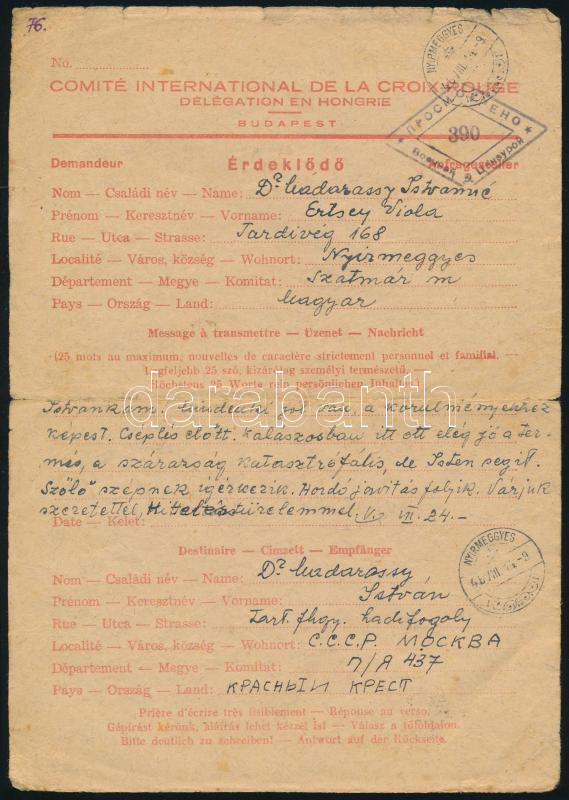 76.
No.
COMITÉ INTERNATIONAL DE LA CROIX-ROUGE
DÉLÉGATION EN HONGRIE
BUDAPEST
NYIRMEGGYES
ПРОСМОТРЕНО
390
Demandeur Érdeklődő Anfragesteller
Nom — Családi név — Name: Dr Madarassy Istvánné
Prénom — Keresztnév — Vorname: Ertsey Viola
Rue — Utca — Strasse: Tardivég 168
Localité — Város, község — Wohnort: Nyirmeggyes
Département — Megye — Komitat: Szatmár m
Pays — Ország — Land: Magyar
Message à transmettre — Üzenet — Nachricht
(25 mots au maximum, nouvelles de caractère strictement personnel et familial. —
Legfeljebb 25 szó, kizárólag személyi természetű.
Höchstens 25 Worte rein persönlichen Inhalts.)
darabanth
Istvankám, mindenki jól van, a körülményekhez
képest. Cséplés előtt. Kalászosban itt ott elég jó a ter-
més, a szárarság katasztrófális, de Isten segit.
Szőlő szépnek igérkezik. Hordó javitás folyik. Várjuk
szeretettel, türelemmel. V. VII. 24.-
Date — Kelet:
Destinaire — Cimzett — Empfänger
NYIRMEGGYES
Nom — Családi név — Name: Dr Madarassy
Prénom — Keresztnév — Vorname: István
Rue — Utca — Strasse: Tart. fhgy. hadifogoly
Localité — Város, község — Wohnort: С.С.С.Р. МОСКВА
Département — Megye — Komitat: П/Я 437
Pays — Ország — Land: КРАСНЫЙ КРЕСТ
Prière d'écrire très lisiblement — Réponse au verso.
Gépírást kérünk, aláírás lehet kézzel is! — Válasz a túloldalon.
Bitte deutlich zu schreiben! — Antwort auf der Rückseite.